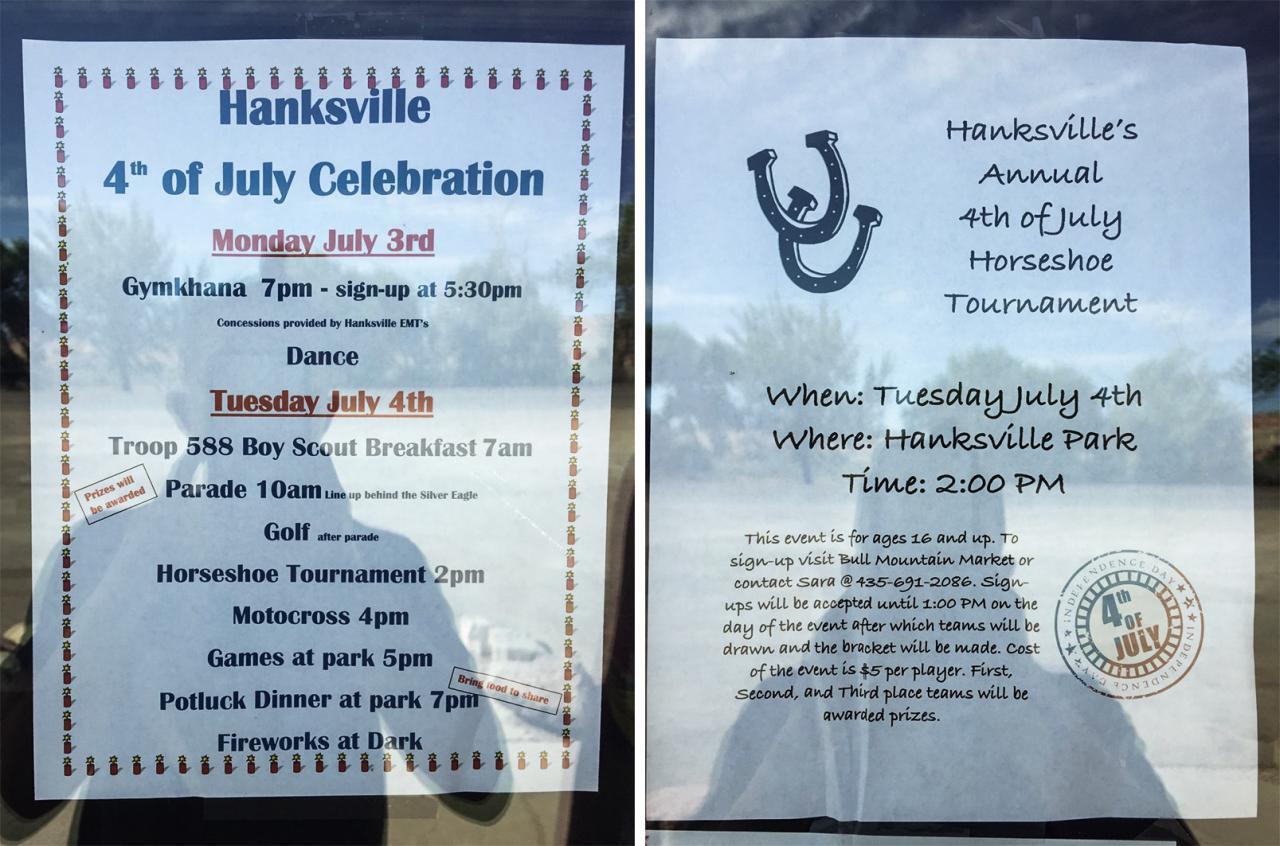 Hanksville
4th of July Celebration
Monday July 3rd
Gymkhana 7pm - sign-up at 5:30pm
Concessions provided by Hanksville EMT's
Dance
Tuesday July 4th
Troop 588 Boy Scout Breakfast 7am
Prizes will
be awarded
Parade 10am Line up behind the Silver Eagle
Golf after parade
Horseshoe Tournament 2pm
Motocross 4pm
Games at park 5pm
Bring food to share
Potluck Dinner at park 7pm
Fireworks at Dark
Hanksville's
Annual
4th of July
Horseshoe
Tournament
When: Tuesday July 4th
Where: Hanksville Park
Time: 2:00 PM
This event is for ages 16 and up. To
sign-up visit Bull Mountain Market or
contact Sara @ 435-691-2086. Sign-
ups will be accepted until 1:00 PM on the
day of the event after which teams will be
drawn and the bracket will be made. Cost
of the event is $5 per player. First,
Second, and Third place teams will be
awarded prizes.
INDEPENDENCE DAY
INDEPENDENCE DAY
INDEPENDENCE DAY
4th
OF
JULY